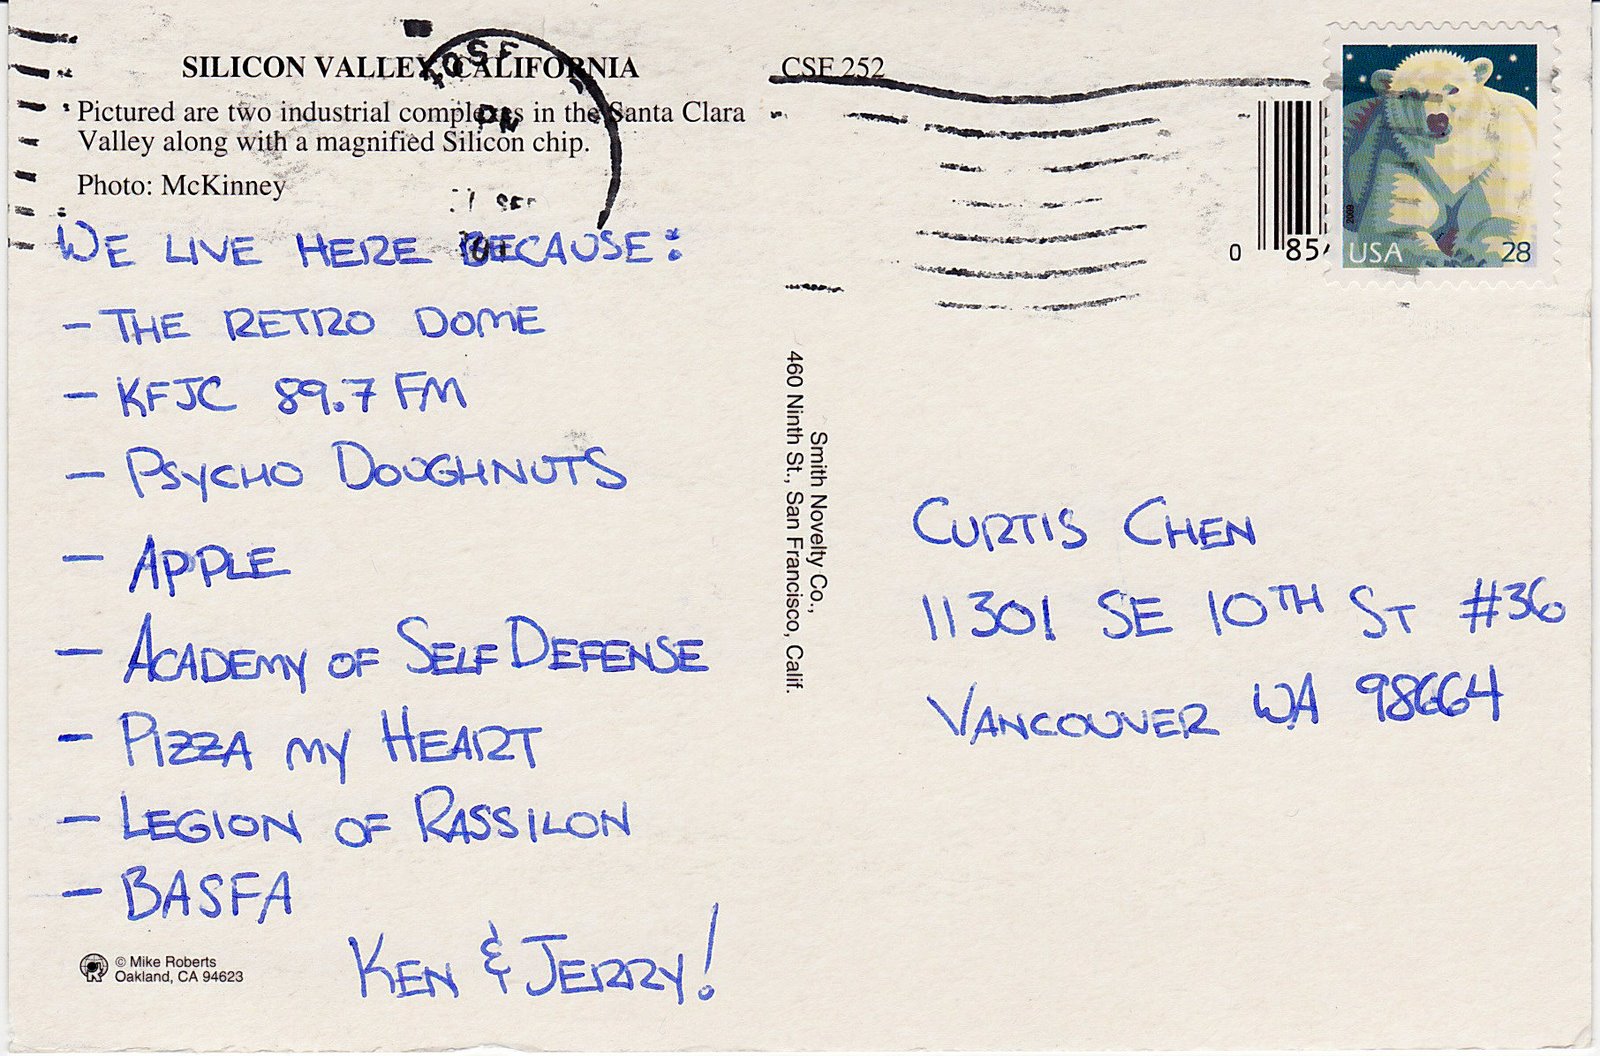 SILICON VALLEY, CALIFORNIA
Pictured are two industrial complexes in the Santa Clara
Valley along with a magnified Silicon chip.
Photo: McKinney
WE LIVE HERE BECAUSE:
- THE RETRO DOME
- KFJC 89.7 FM
- PSYCHO DOUGHNUTS
- APPLE
- ACADEMY OF SELF DEFENSE
- PIZZA MY HEART
- LEGION OF RASSILON
- BASFA
KEN & JERRY!
© Mike Roberts
Oakland, CA 94623
OSE
PM
1 SEP
CSF 252
Smith Novelty Co.,
460 Ninth St., San Francisco, Calif.
0 85
2009
USA 28
CURTIS CHEN
11301 SE 10TH ST #36
VANCOUVER WA 98664